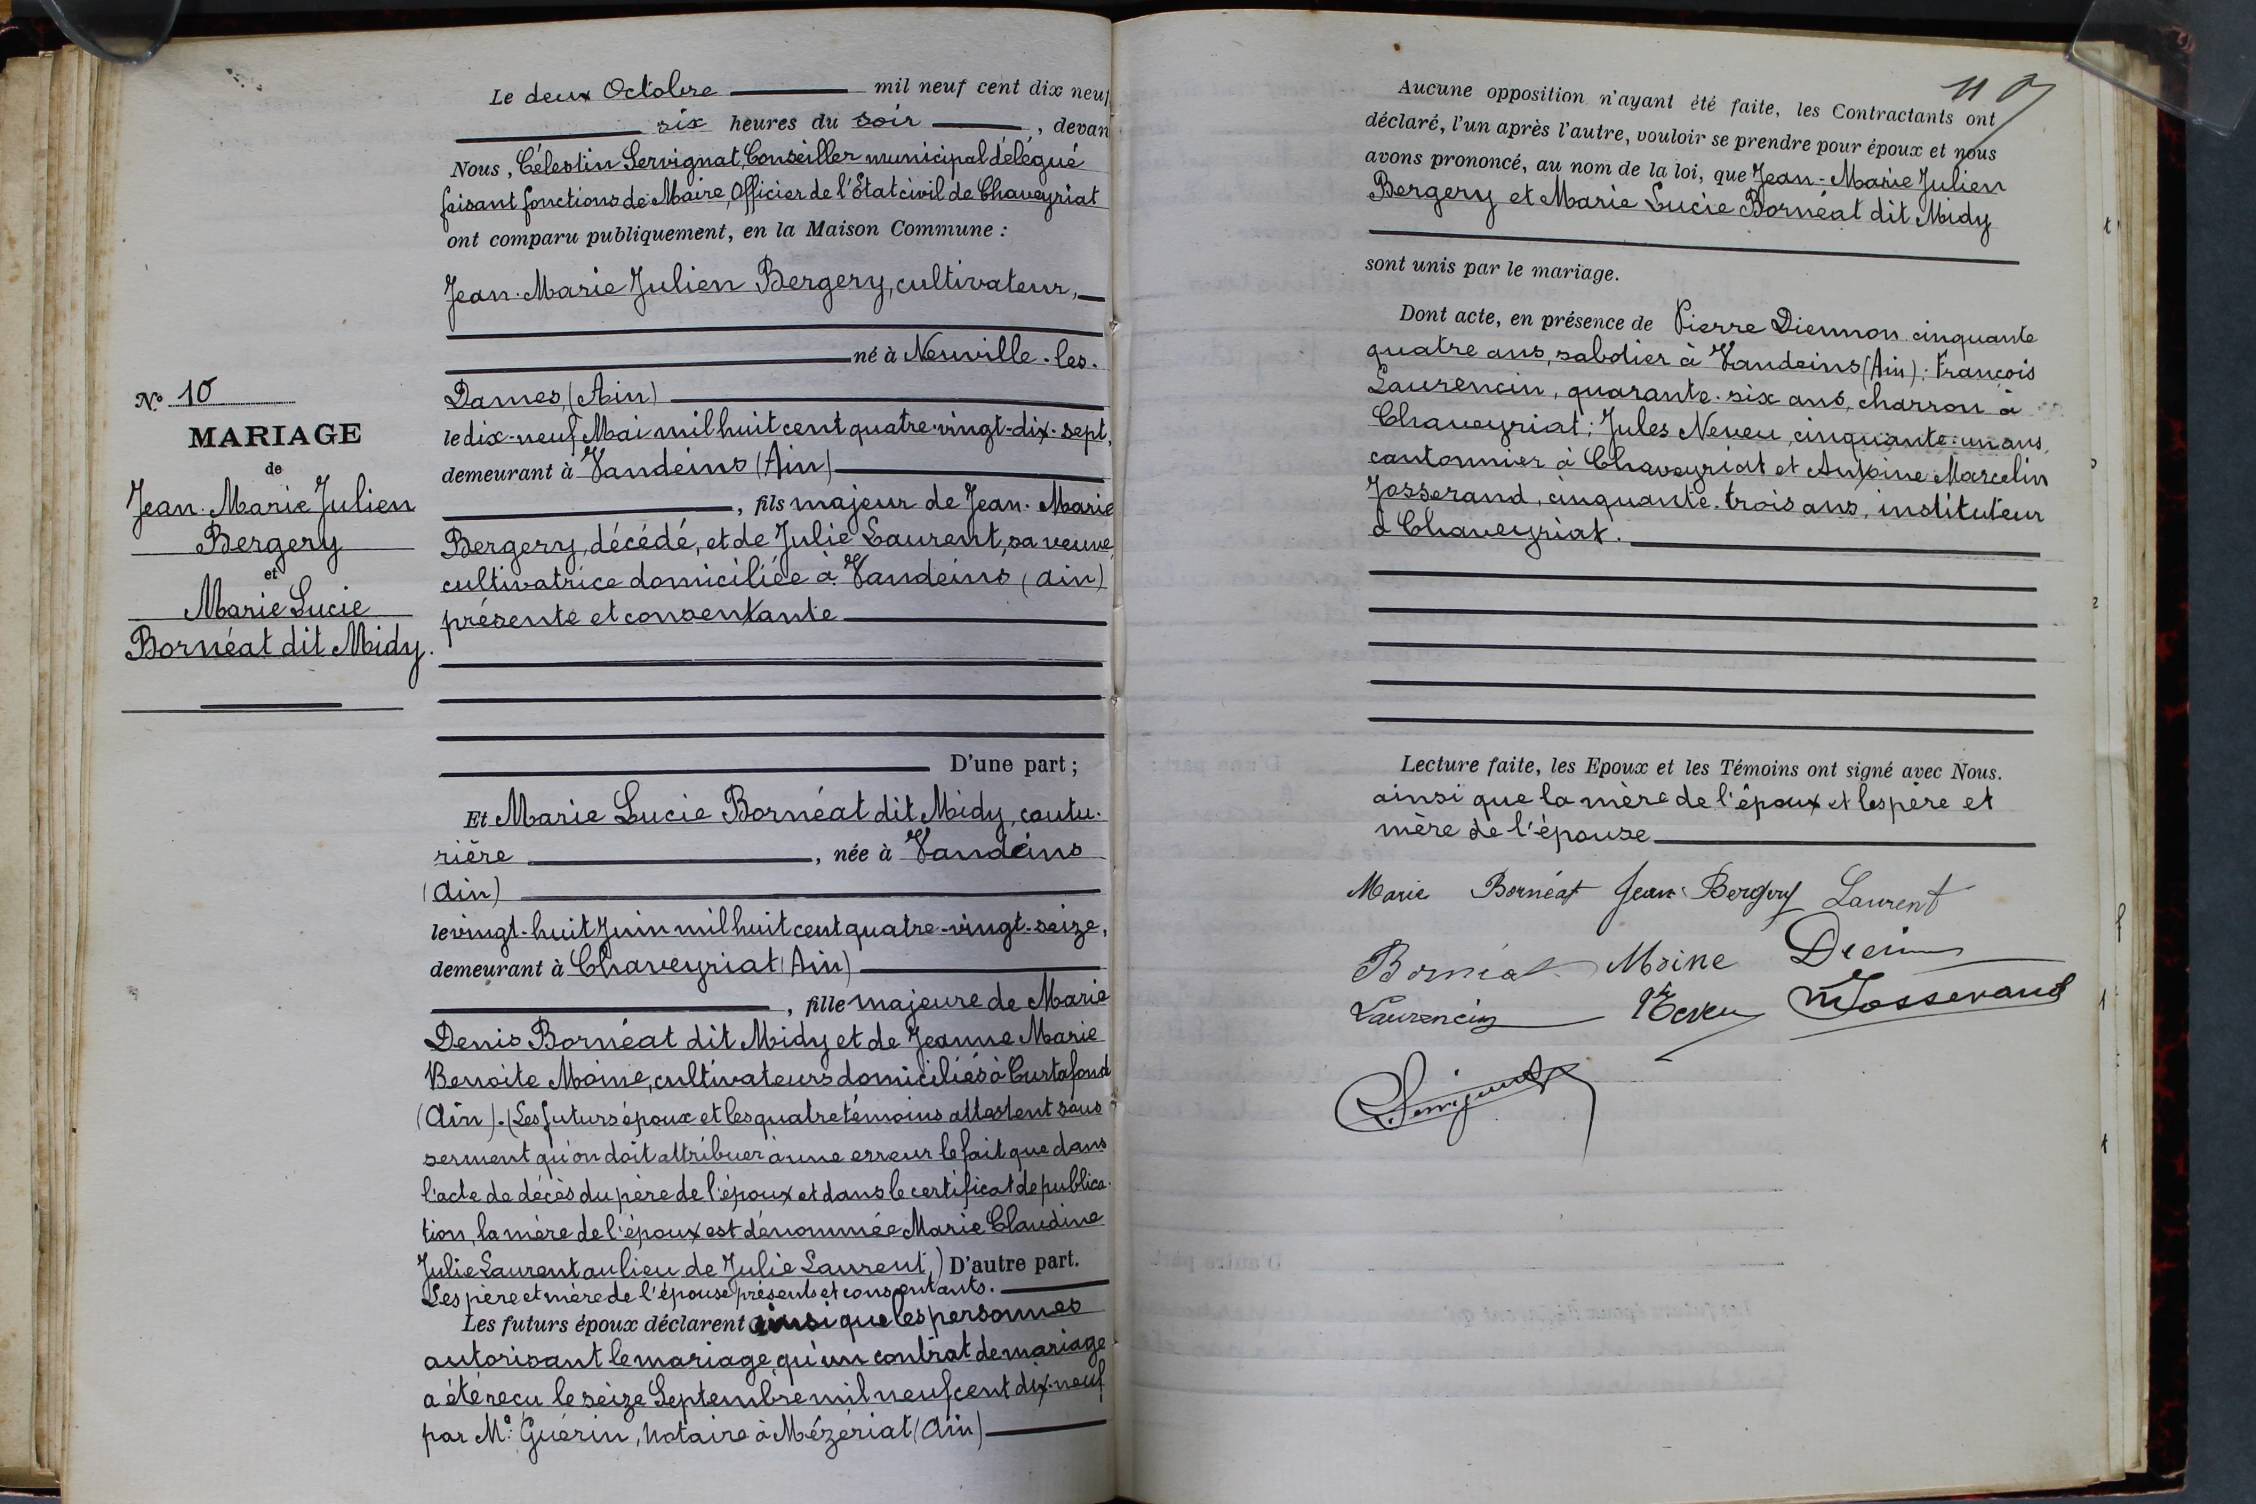 N° 10
MARIAGE
de
Jean-Marie Julien
Bergery
et
Marie Lucie
Bornéat dit Midy.
Le deux Octobre mil neuf cent dix neuf
six heures du soir, devan
Nous, Célestin Servignat, Conseiller municipal délégué
faisant fonctions de Maire, Officier de l'Etat civil de Chaveyriat
ont comparu publiquement, en la Maison Commune :
Jean-Marie Julien Bergery, cultivateur,
né à Neuville-les-
Dames, (Ain)
le dix-neuf Mai mil huit cent quatre-vingt-dix-sept,
demeurant à Vandeins (Ain)
, fils majeur de Jean-Marie
Bergery, décédé, et de Julie Laurent, sa veuve,
cultivatrice domiciliée à Vandeins (Ain)
présente et consentante
D'une part ;
Et Marie Lucie Bornéat dit Midy, coutu-
rière, née à Vandeins
(Ain)
le vingt-huit Juin mil huit cent quatre-vingt-seize,
demeurant à Chaveyriat (Ain)
, fille majeure de Marie
Denis Bornéat dit Midy et de Jeanne Marie
Benoite Moine, cultivateurs domiciliés à Curtafond
(Ain). (Les futurs époux et les quatre témoins attestent sous
serment qu'on doit attribuer à une erreur le fait que dans
l'acte de décès du père de l'époux et dans le certificat de publica-
tion, la mère de l'époux est dénommée Marie Claudine
Julie Laurent au lieu de Julie Laurent.) D'autre part.
Les père et mère de l'épouse présents et consentants.
Les futurs époux déclarent ainsi que les personnes
autorisant le mariage, qu'un contrat de mariage
a été reçu le seize Septembre mil neuf cent dix-neuf
par Me Guérin, notaire à Mézériat (Ain)
Aucune opposition n'ayant été faite, les Contractants ont
déclaré, l'un après l'autre, vouloir se prendre pour époux et nous
avons prononcé, au nom de la loi, que Jean-Marie Julien
Bergery et Marie Lucie Bornéat dit Midy
sont unis par le mariage.
Dont acte, en présence de Pierre Diennon, cinquante
quatre ans, sabotier à Vandeins (Ain) ; François
Laurencin, quarante-six ans, charron à
Chaveyriat ; Jules Neveu, cinquante-un ans,
cantonnier à Chaveyriat et Antoine Marcelin
Josserand, cinquante-trois ans, instituteur
à Chaveyriat.
Lecture faite, les Epoux et les Témoins ont signé avec Nous.
ainsi que la mère de l'époux et les père et
mère de l'épouse
Marie Bornéat Jean Bergery Laurent
Bornéat Moine
Laurencin Neveu Josserand
Servignat